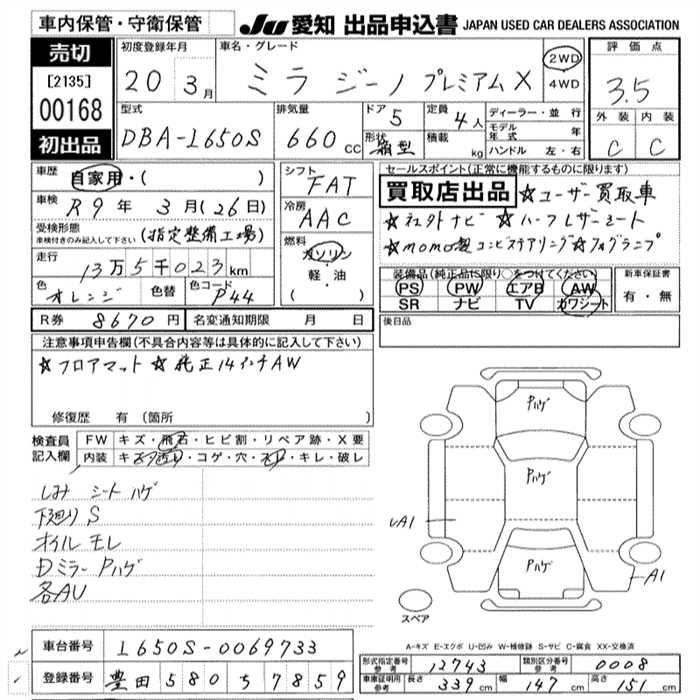 車内保管・守衛保管
JU 愛知 出品申込書 JAPAN USED CAR DEALERS ASSOCIATION
売切
[2135]
00168
初出品
初度登録年月
20 3月
車名・グレード
ミラ ジーノ プレミアムX
2WD
4WD
評価点
3.5
外装 内装
C C
型式
DBA-L650S
排気量
660 CC
ドア 5
形状 箱型
定員 4人
積載 kg
ディーラー・並行
モデル年式 年
ハンドル 左・右
車歴
自家用・( )
車検
R9年 3月(26日)
受検形態
車検付きのみ記入して下さい
(指定整備工場)
走行
13万5千023km
色 オレンジ 色替 色コード P44
シフト
FAT
冷房
AAC
燃料
ガソリン
軽・油
( )
R券 8670円 名変通知期限 月 日
セールスポイント(正常に機能するものに限ります)
買取店出品 ☆ユーザー買取車
☆社外ナビ ☆ハーフレザーシート
☆momo製コンビステアリング☆フォグランプ
装備品(純正品に限り○をつけてください)
PS PW エアB AW
SR ナビ TV カワシート
新車保証書
有・無
後日品
注意事項申告欄(不具合内容等は具体的に記入して下さい)
☆フロアマット ☆純正14インチAW
修復歴 有(箇所 )
検査員記入欄
FW キズ・飛石・ヒビ割・リペア跡・X要
内装 キズ・汚れ・コゲ・穴・スレ・キレ・破レ
しみ シートハゲ
下廻りS
オイルモレ
Dミラー Pハゲ
各AU
Pハゲ
Pハゲ
LA1
Pハゲ
A1
スペア
A-キズ E-エクボ U-凹み W-補修跡 S-サビ C-腐食 XX-交換済
車台番号 L650S-0069733
登録番号 豊田 580 ち 7859
形式指定番号 参考 12743 類別区分番号 参考 0008
車庫証明用 参考 長さ 339cm 幅 147cm 高さ 151cm